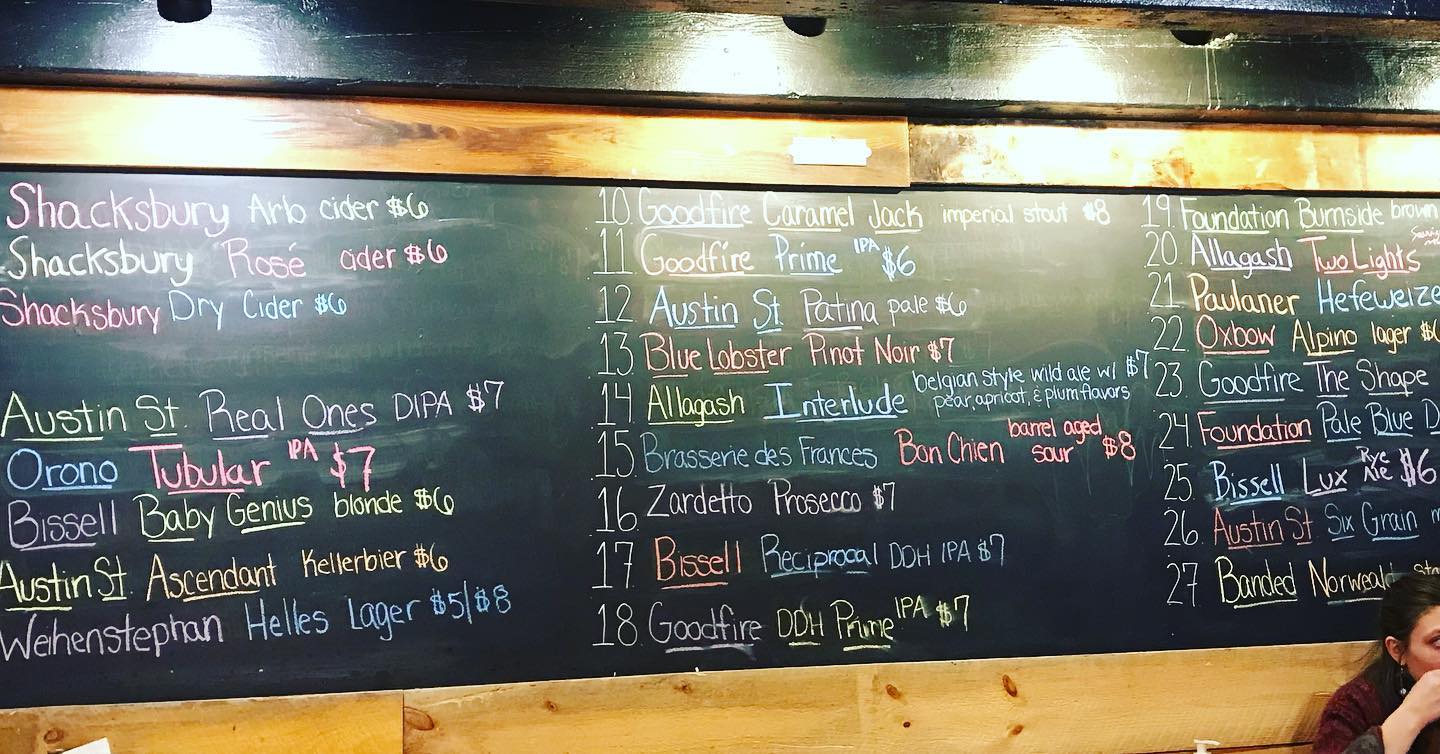 Shacksbury Arlo cider $6
Shacksbury Rosé cider $6
Shacksbury Dry Cider $6
Austin St. Real Ones DIPA $7
Orono Tubular IPA $7
Bissell Baby Genius blonde $6
Austin St. Ascendant Kellerbier $6
Weihenstephan Helles Lager $5/$8
10. Goodfire Caramel Jack imperial stout $8
11 Goodfire Prime IPA $6
12 Austin St Patina pale $6
13 Blue Lobster Pinot Noir $7
14 Allagash Interlude belgian style wild ale w/ $7
pear, apricot, & plum flavors
15 Brasserie des Frances Bon Chien barrel aged sour $8
16. Zardetto Prosecco $7
17 Bissell Reciprocal DDH IPA $7
18. Goodfire DDH Prime IPA $7
19. Foundation Burnside brown
20. Allagash Two Lights
21 Paulaner Hefeweize
22 Oxbow Alpino lager
23. Goodfire The Shape
24. Foundation Pale Blue D
25. Bissell Lux Rye Ale $6
26. Austin St Six Grain
27 Banded Norweald